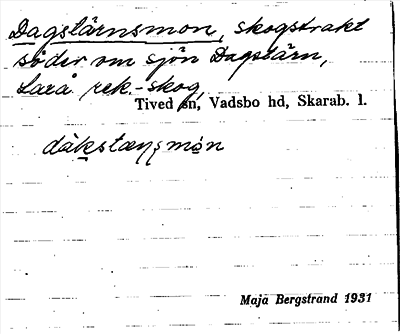 Dagstärnsmon, skogstrakt
söder om sjön Dagstärn,
Laxå rek.-skog,
Tived sn, Vadsbo hd, Skarab. l.
dàkstæɳsmòn
Maja Bergstrand 1931